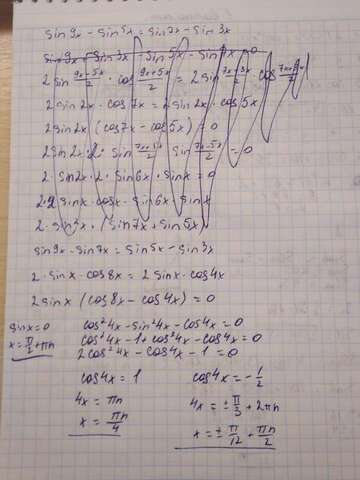 sin9x - sin5x = sin7x - sin3x
sin9x - sin3x - sin5x - sin7x = 0
2 sin (9x-5x)/2 · cos (9x+5x)/2 = 2 sin (7x-3x)/2 · cos (7x+3x)/2
2 sin2x · cos7x = 2 sin2x · cos5x
2 sin2x (cos7x - cos5x) = 0
2 · sin2x · 2 · sin6x · sinx = 0
2·2 sinx · cosx · sin6x · sinx
2 · sin²x · (sin7x + sin5x)
sin9x - sin7x = sin5x - sin3x
2 · sinx · cos8x = 2 sinx · cos4x
2 sinx (cos8x - cos4x) = 0
sinx = 0 cos²4x - sin²4x - cos4x = 0
x = π/2 + πn cos²4x - 1 + cos²4x - cos4x = 0
2cos²4x - cos4x - 1 = 0
cos4x = 1 cos4x = -1/2
4x = πn 4x = ± π/3 + 2πn
x = πn/4 x = ± π/12 + πn/2